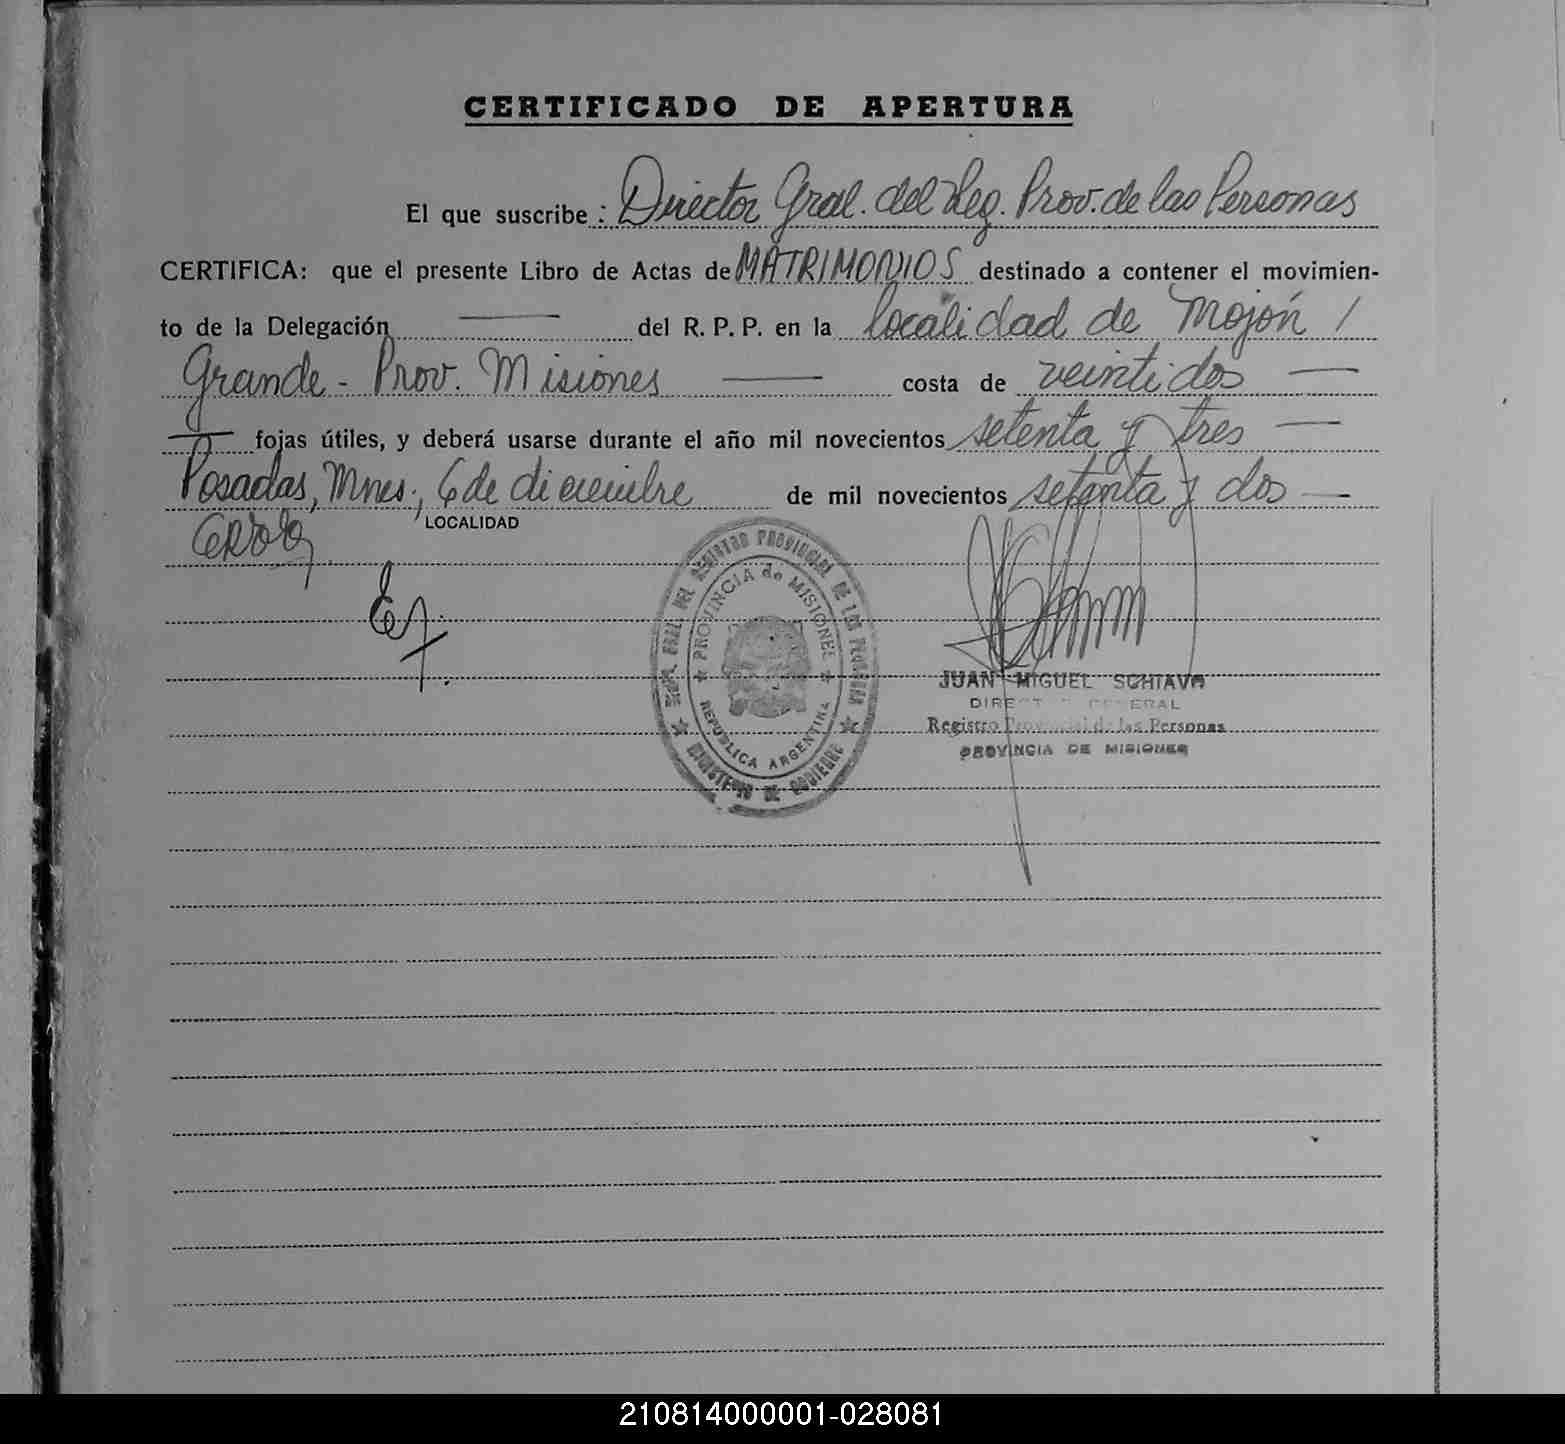 CERTIFICADO DE APERTURA
El que suscribe: Director Gral. del Reg. Prov. de las Personas
CERTIFICA: que el presente Libro de Actas de MATRIMONIOS destinado a contener el movimien-
to de la Delegación — del R. P. P. en la localidad de Mojón /
Grande - Prov. Misiones — costa de veintidos —
— fojas útiles, y deberá usarse durante el año mil novecientos setenta y tres —
Posadas, Mnes., 6 de diciembre de mil novecientos setenta y dos —
LOCALIDAD
GRAL. DEL REGISTRO PROVINCIAL DE LAS PERSONAS
PROVINCIA de MISIONES
REPUBLICA ARGENTINA
MINISTERIO DE GOBIERNO
JUAN MIGUEL SCHIAVO
DIRECTOR GENERAL
Registro Provincial de las Personas
PROVINCIA DE MISIONES
210814000001-028081